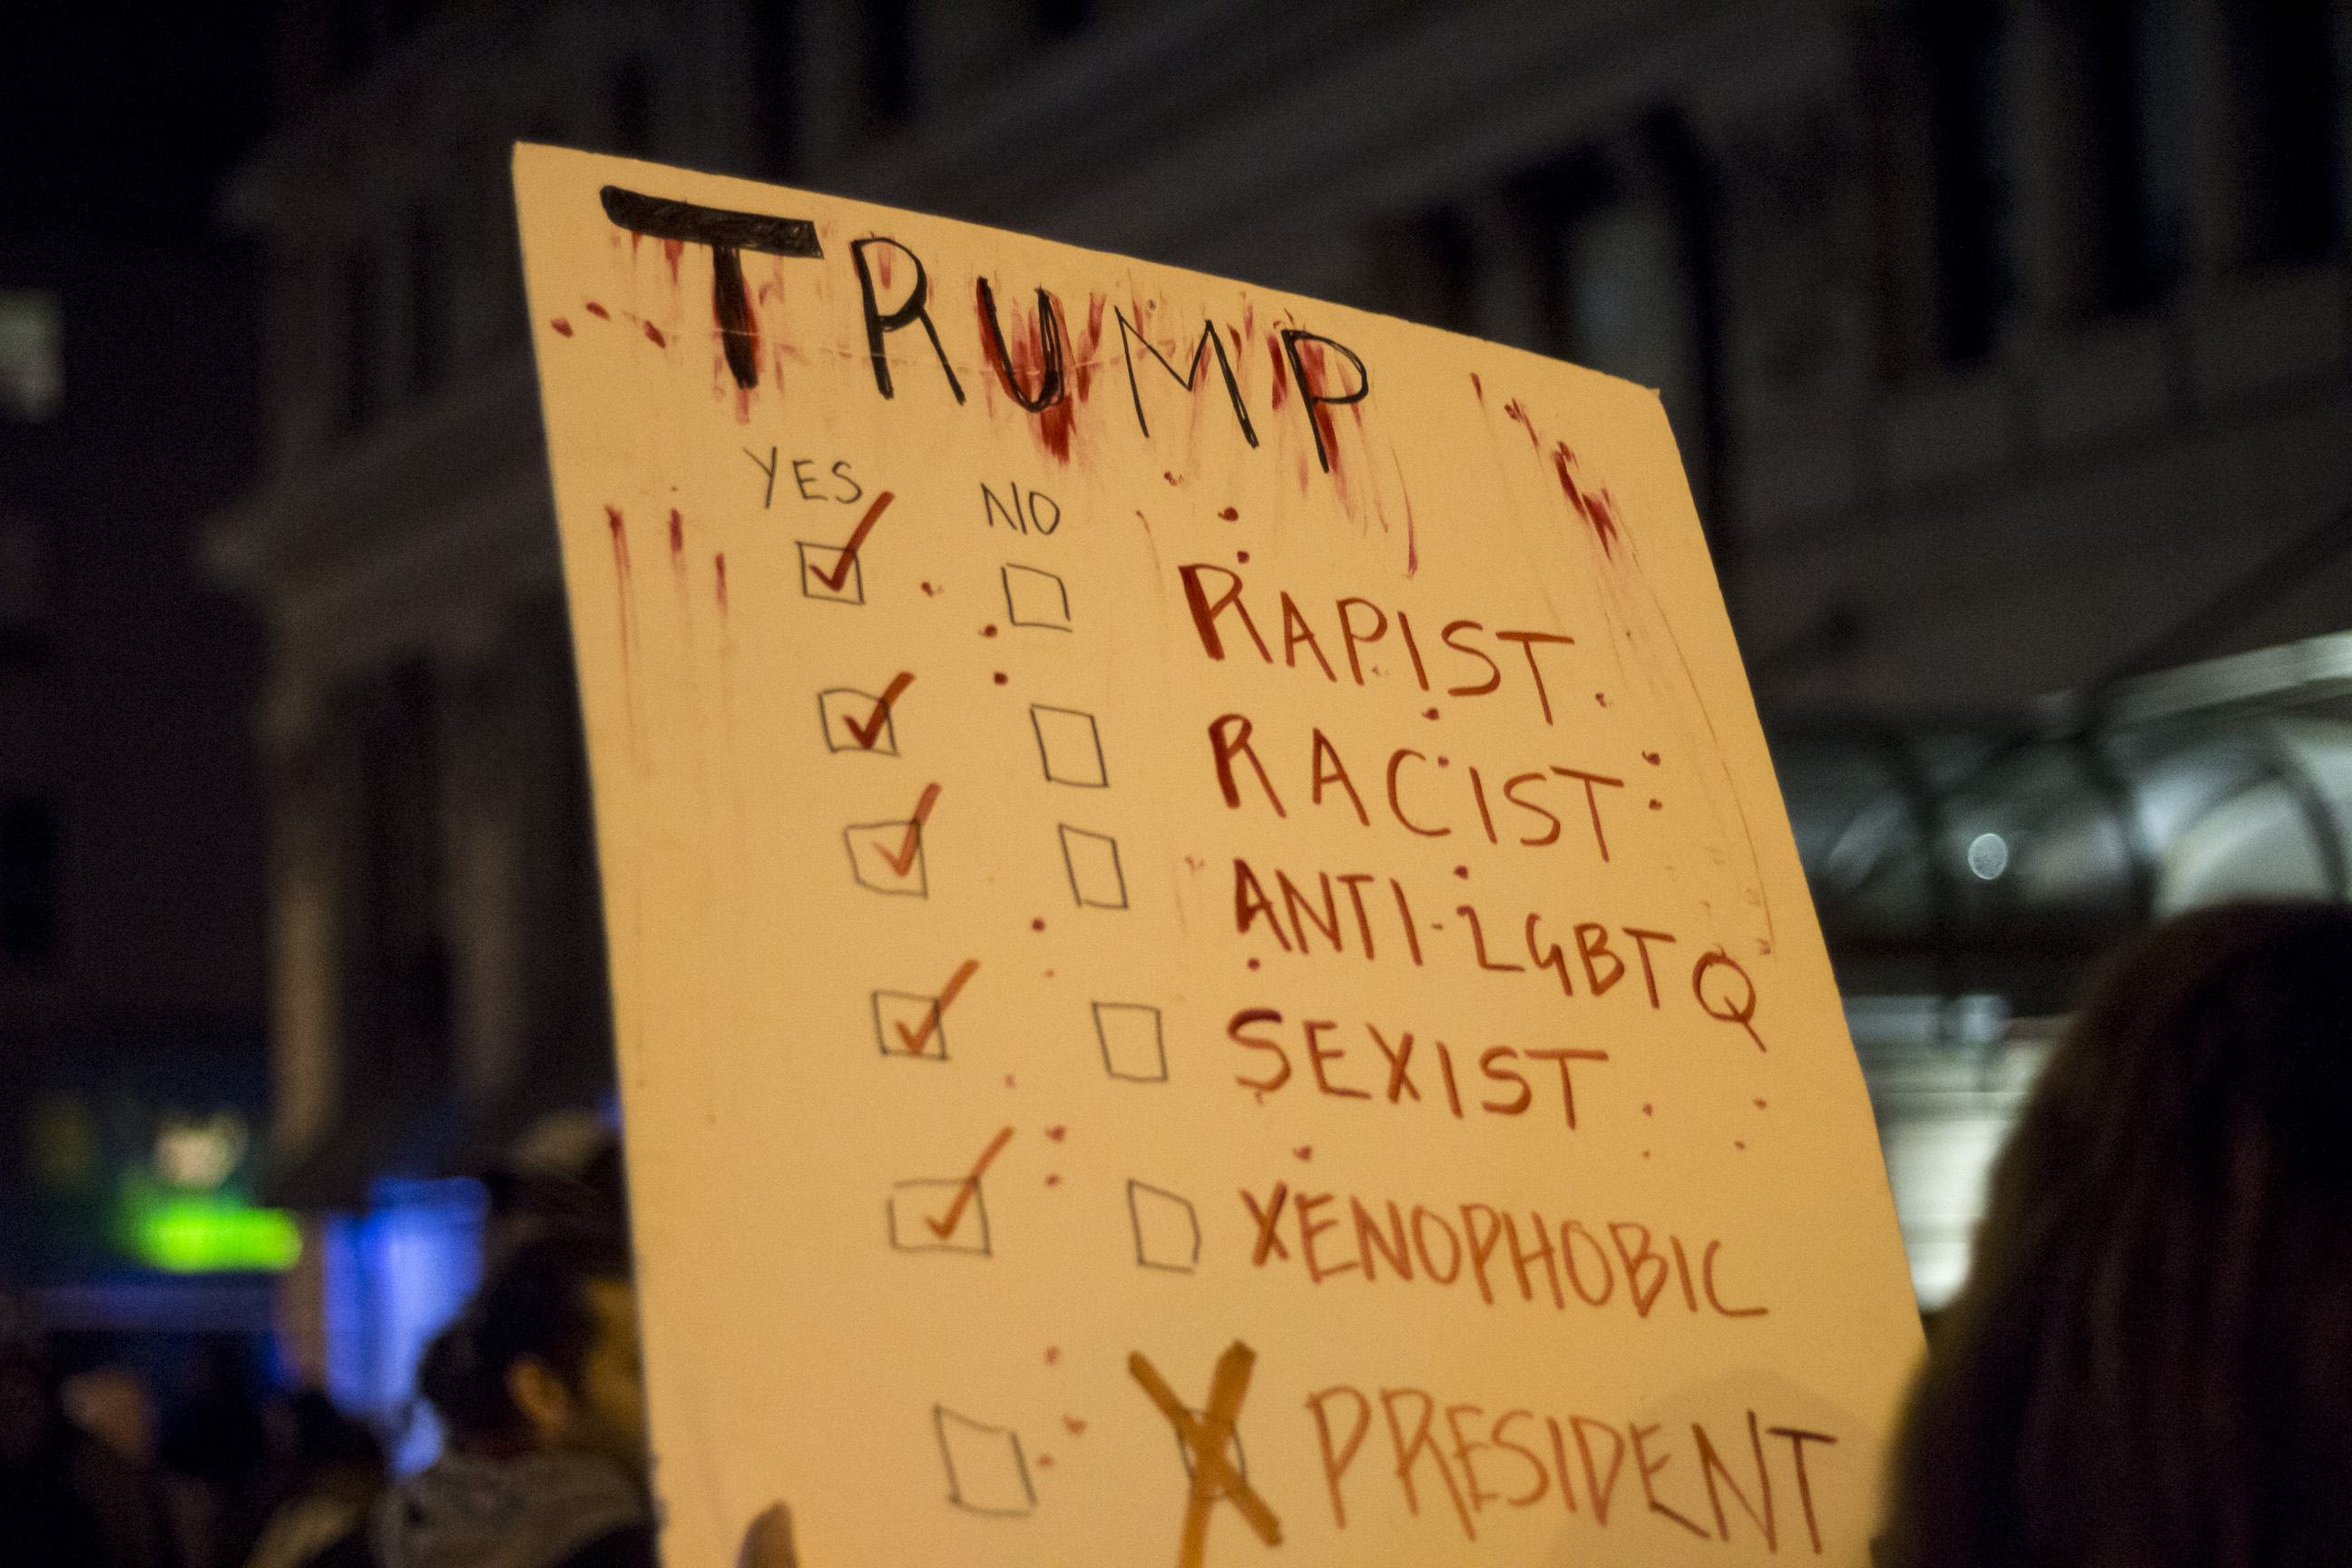 TRUMP
YES NO
RAPIST
RACIST
ANTI-LGBTQ
SEXIST
XENOPHOBIC
PRESIDENT